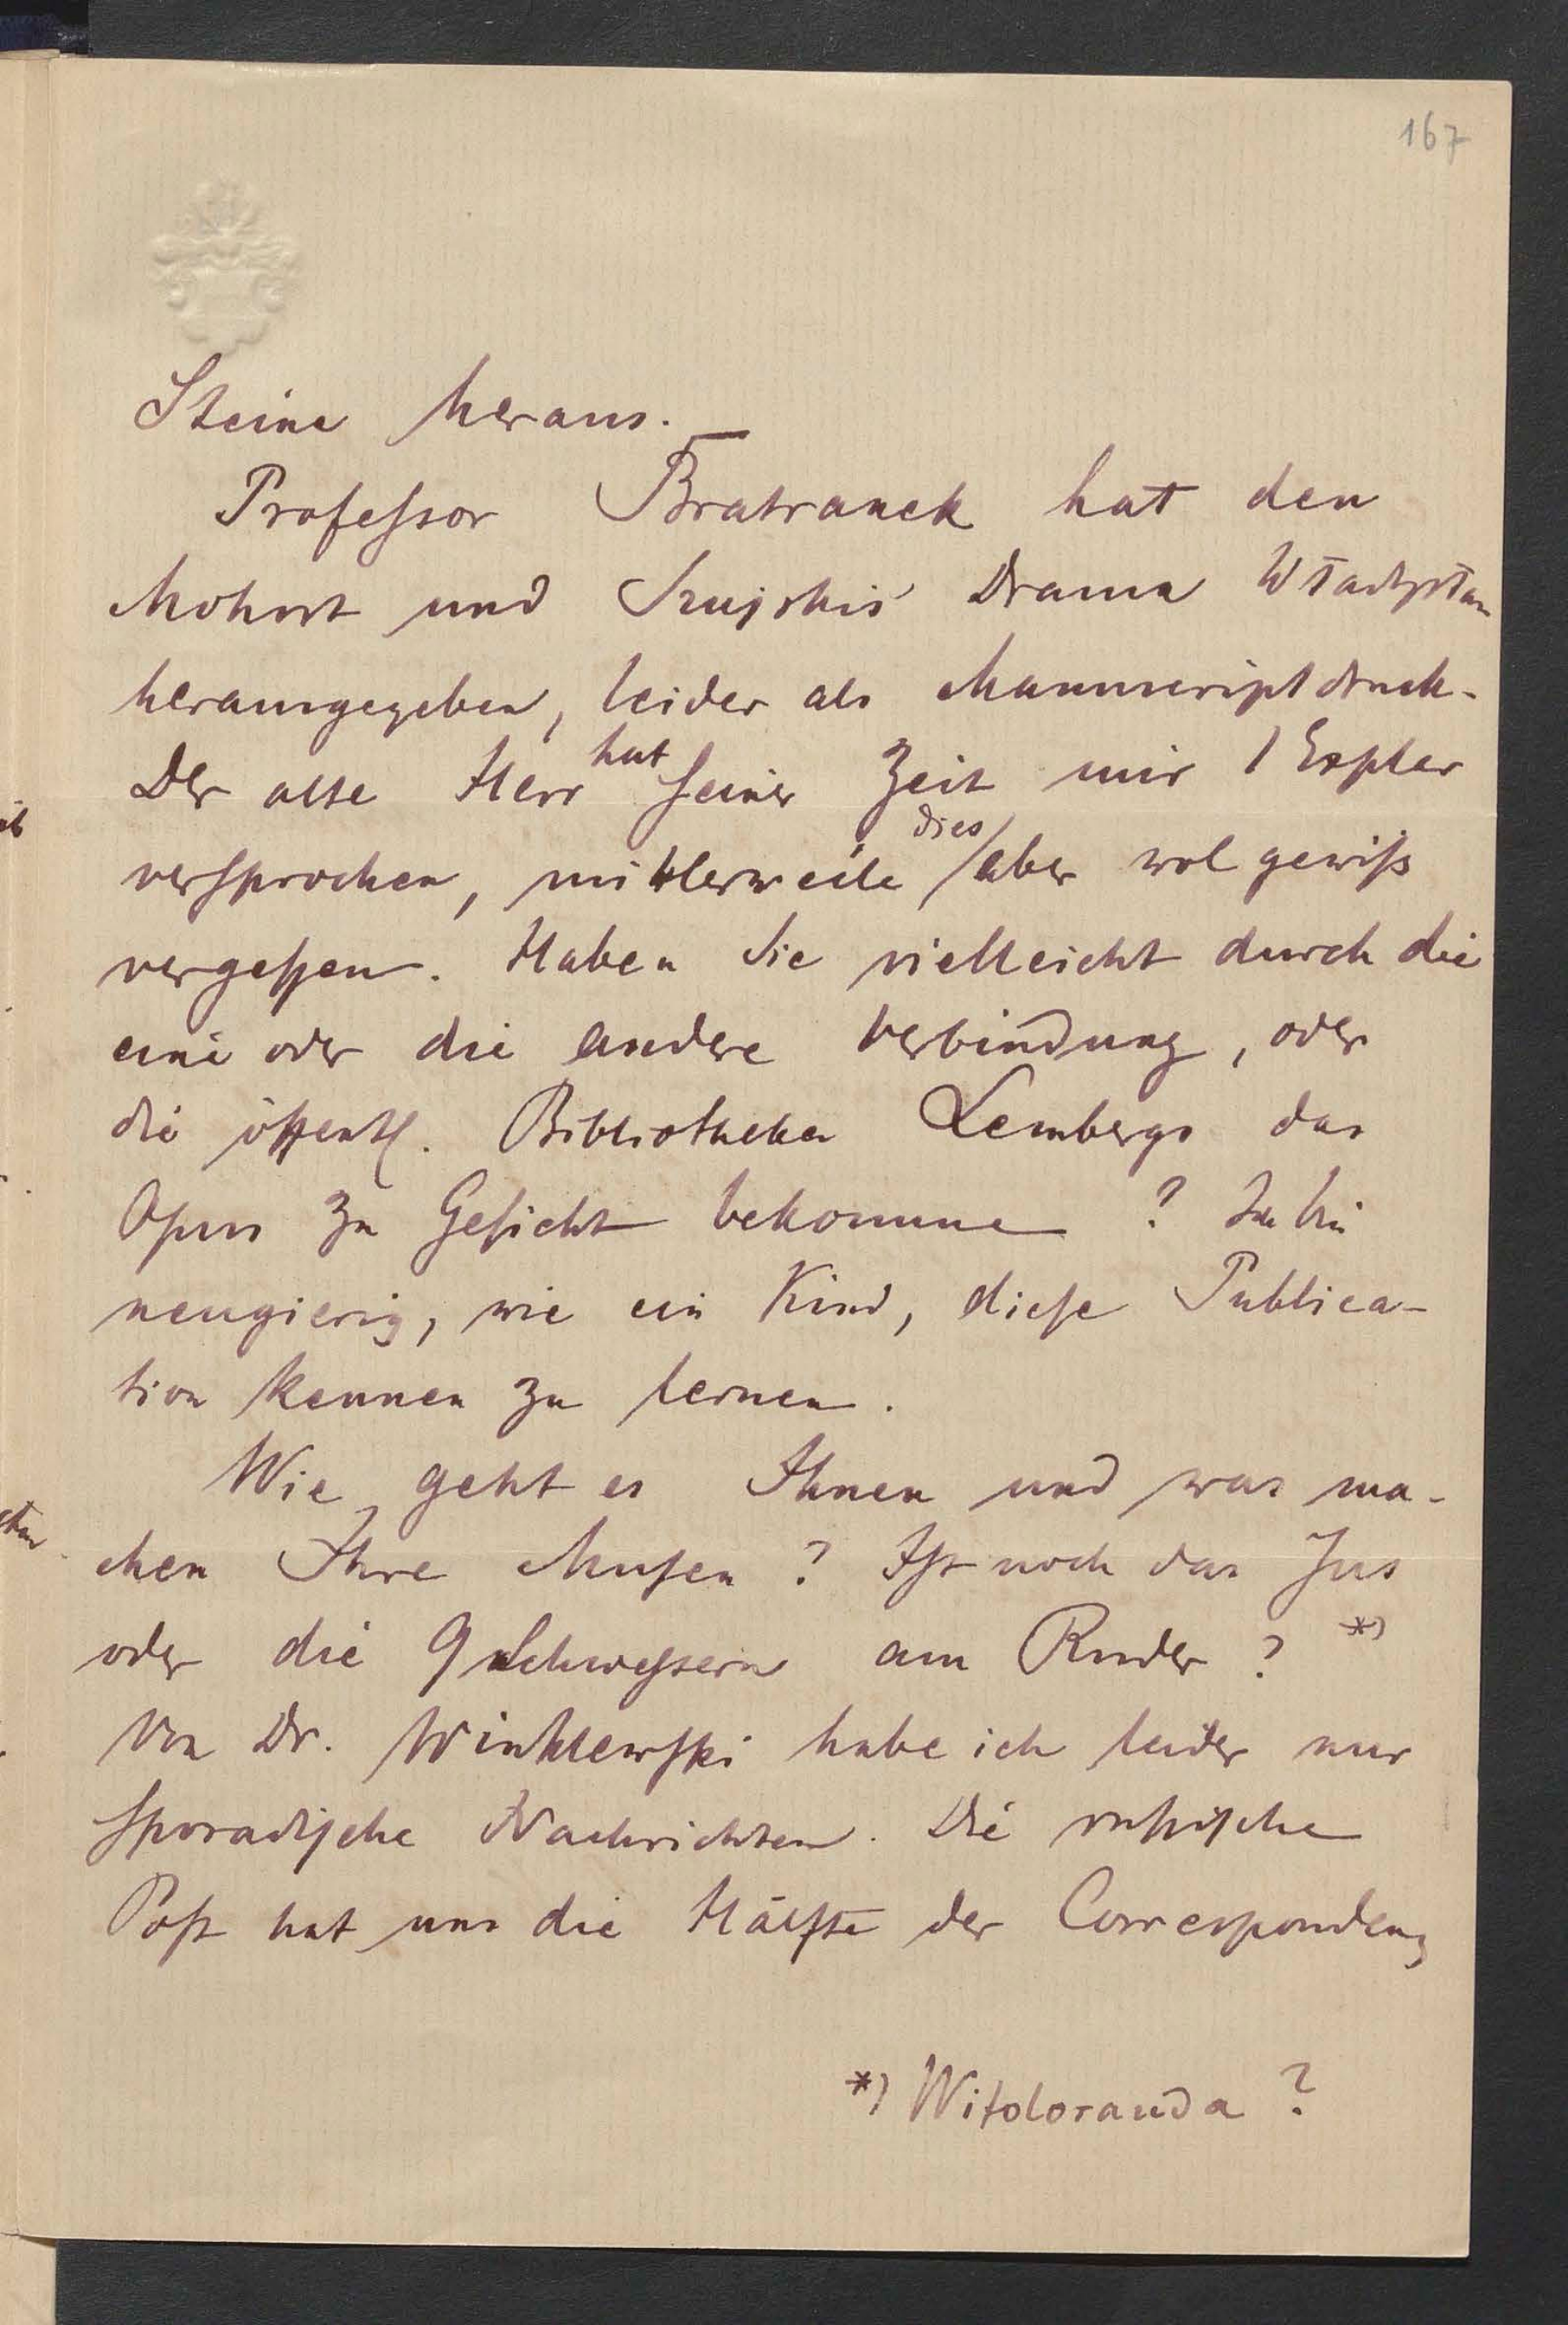 167
Steine heraus. —
Professor Bratranek hat den
Mohort und Szujskis Drama Władysław
herausgegeben, leider als Manuscriptdruck.
Der alte Herr hat seiner Zeit mir 1 Expler
versprochen, mittlerweile dies aber wol gewiß
vergessen. Haben Sie vielleicht durch die
eine oder die andere Verbindung, oder
die öffentl. Bibliotheken Lembergs das
Opus zu Gesicht bekommen? Ich bin
neugierig, wie ein Kind, diese Publica-
tion kennen zu lernen.
Wie geht es Ihnen und was ma-
chen Ihre Musen? Ist noch das Jus
oder die 9 Schwestern am Ruder? *)
Von Dr. Winklewski habe ich leider nur
sporadische Nachrichten. Die russische
Post hat uns die Hälfte der Correspondenz
*) Witoloranda?